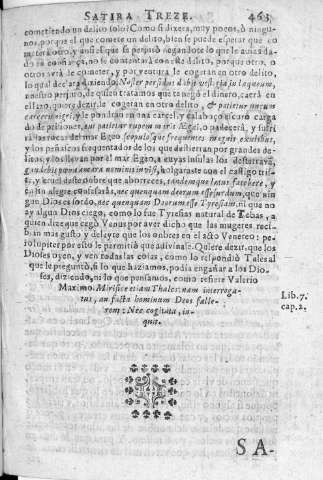 SATIRA TREZE. 463
cometiendo un delito solo? Como si dixera, muy pocos, ò ningu-
nos, porque el que comete un delito, bien se puede esperar que cometerà
otro, y aunque se perjurò negandote lo que le avias da-
do en confiança, no se contentarà con este delito, porque otro, o
otros avrà de cometer, y por ventura le cogeràn en otro delito,
lo qual declara diziendo, Noster perfidus dabit vestigia in laqueum,
nuestro perjuro, de quien tratamos que te negò el dinero, caerà en
el lazo, quiere dezir, le cogeràn en otro delito, & patietur uncum
carceris nigri, y le pondràn en una carcel, y calaboço escuro cargado
de prisiones, aut patietur rupem maris Ægæi, o padecerà, y sufrirà
las rocas del mar Egeo, scopulosque frequentes magnis exulibus,
y los peñascos frequentados de los que destierran por grandes de-
litos, y los llevan por el mar Egeo, a cuyas insulas los desterravã,
gaudebis poena amara nominis invisi, holgaraste con el castigo tris-
te, y cruel deste nombre que aborreces, tandemque lætus fatebere, y
en fin alegre confessaràs, nec quenquam deorum esse surdum, que nin-
gun Dios es sordo, nec quenquam Deorum esse Tyresiam, ni que no
ay algun Dios ciego, como lo fue Tyresias natural de Tebas, a
quien dize que cegò Venus por aver dicho que las mugeres reci-
bian mas gusto y deleyte que los onbres en el acto Venereo: pe-
ro Iupiter por esto le permitiò que adivinale. Quiere dezir, que los
Dioses oyen, y ven todas las cosas, como lo respondiò Tales al
que le preguntò, si lo que haziamos, podia engañar a los Dio-
ses, diziendo, ni lo que pensamos, como refiere Valerio
Maximo. Mirifice etiam Thales: nam interroga-
tus, an facta hominum Deos falle-
rent: Nec cogitata, in-
quit.
Lib. 7.
cap. 2.
SA-